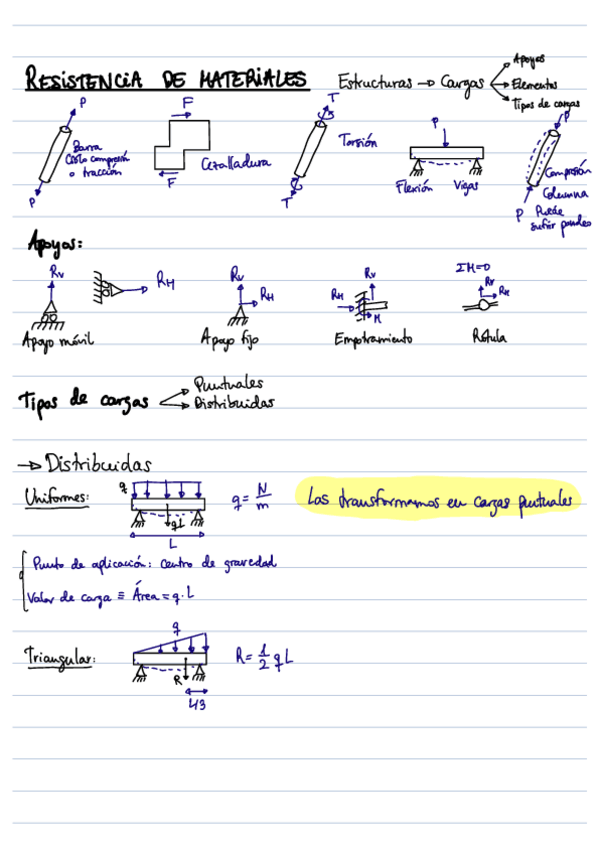 RESISTENCIA DE MATERIALES
Estructuras → Cargas
Apoyos
Elementos
Tipos de cargas
P
Barra
Sólo compresión
o tracción
P
F
Cizalladura
F
T
Torsión
T
P
Flexión Vigas
P
Compresión
Columna
P Puede
sufrir pandeo
Apoyos:
Rv
RH
Apoyo móvil
Rv
RH
Apoyo fijo
Rv
RH
M
Empotramiento
ΣM=0
Rv
RH
Rótula
Tipos de cargas
Puntuales
Distribuidas
→ Distribuidas
Uniformes:
q
qL
L
q = N/m
Las transformamos en cargas puntuales
Punto de aplicación: centro de gravedad
Valor de carga ≡ Área = q·L
Triangular:
q
R
L/3
R = 1/2 qL